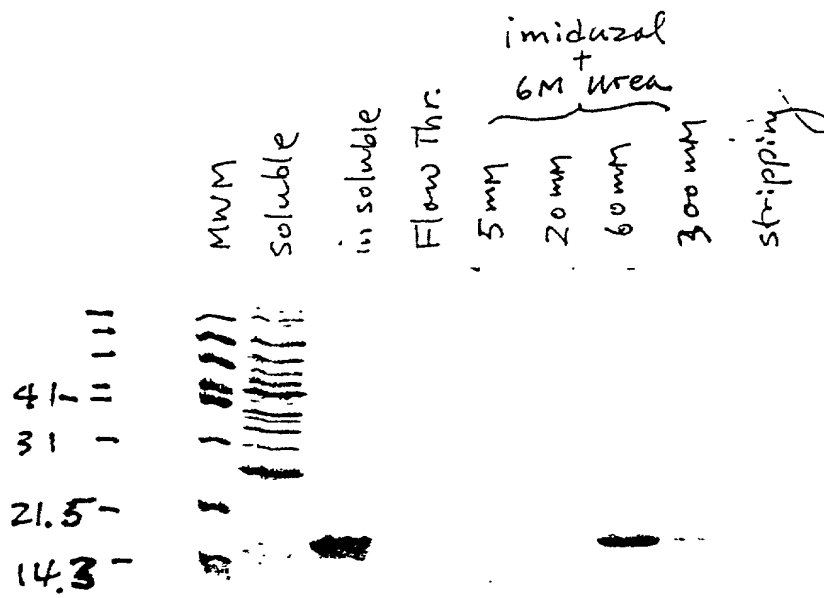 imiduzal
+
6M urea
MWM
soluble
in soluble
Flow Thr.
5mM
20mM
60mM
300mM
stripping
41-
31
21.5-
14.3-